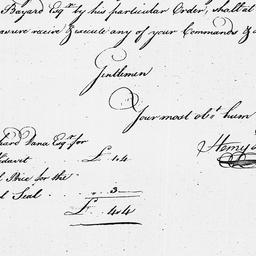 Bayard Esqr by his particular Order, shall at
receive & execute any of your Commands &
Gentlemen
Your most obt hum
Dana Esqr for
£ 4.4
Price for the
Seal .. 3
£ 4.4
Henry